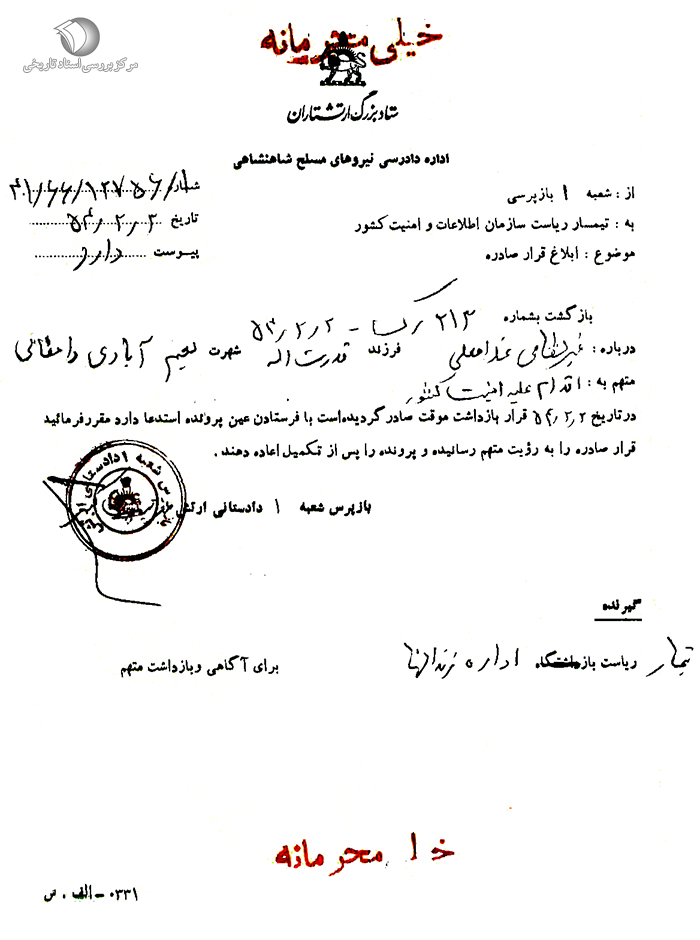 خیلی محرمانه
مرکز بررسی اسناد تاریخی
ستاد بزرگ ارتشتاران
اداره دادرسی نیروهای مسلح شاهنشاهی
از : شعبه ۱ بازپرسی
شماره
به : تیمسار ریاست سازمان اطلاعات و امنیت کشور
تاریخ ۵۴٫۲٫۲
موضوع : ابلاغ قرار صادره
پیوست دارد
بازگشت بشماره ۲۱۳ - ۵۴٫۲٫۲
درباره : غیرنظامی غلامعلی فرزند قدرت اله شهرت نعیم آبادی دامغانی
متهم به : اقدام علیه امنیت کشور
در تاریخ ۵۴٫۲٫۲ قرار بازداشت موقت صادر گردیده‌است با فرستادن عین پرونده استدعا دارد مقرر فرمائید
قرار صادره را به رؤیت متهم رسانیده و پرونده را پس از تکمیل اعاده دهند .
بازپرس شعبه ۱ دادستانی ارتش
گیرنده
ریاست بازداشتگاه اداره زندانها
برای آگاهی و بازداشت متهم
محرمانه
۰۳۳۱ - الف . س